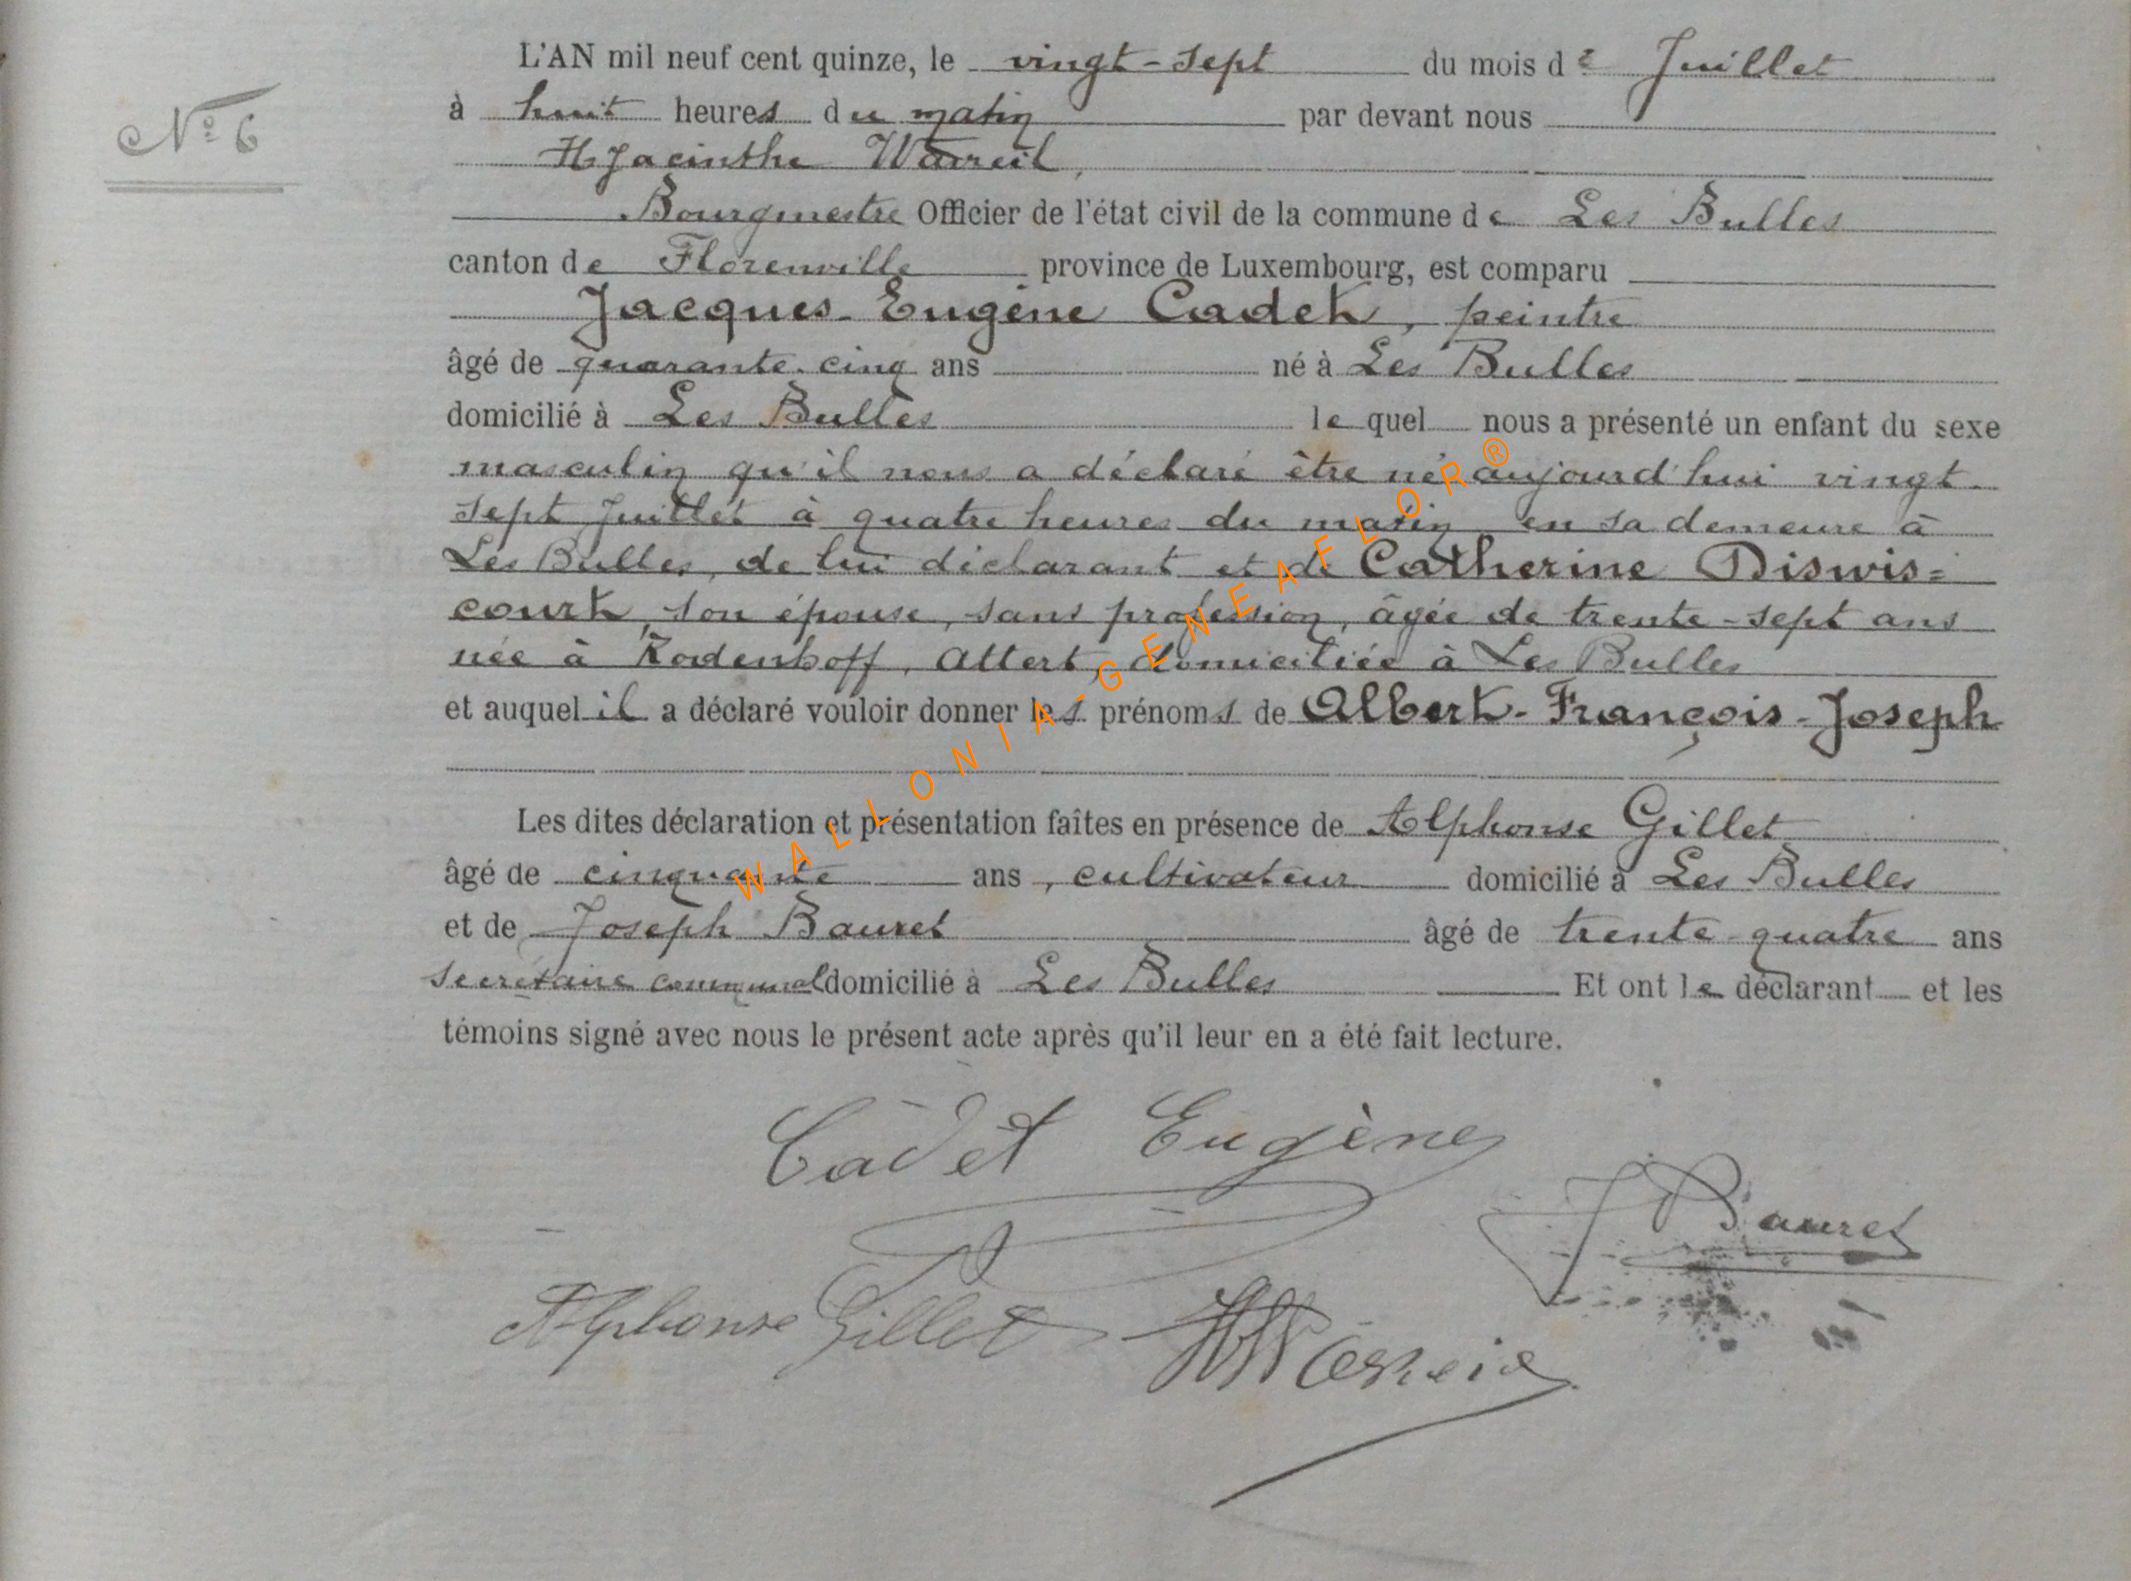 L'AN mil neuf cent quinze, le vingt-sept du mois de Juillet
N° 6
à huit heures du matin par devant nous
Hyacinthe
Bourgmestre Officier de l'état civil de la commune de Les Bulles
canton de Florenville province de Luxembourg, est comparu
Jacques-Eugène Cadet, peintre
âgé de quarante-cinq ans né à Les Bulles
domicilié à Les Bulles lequel nous a présenté un enfant du sexe
masculin qu'il nous a déclaré être né aujourd'hui vingt-
sept Juillet à quatre heures du matin en sa demeure à
Les Bulles, de lui déclarant et de Catherine Diswis=
court, son épouse, sans profession, âgée de trente-sept ans
née à Rodenhoff, Attert, domiciliée à Les Bulles
et auquel il a déclaré vouloir donner les prénoms de Albert-François-Joseph
Les dites déclaration et présentation faîtes en présence de Alphonse Gillet
âgé de cinquante ans, cultivateur domicilié à Les Bulles
et de Joseph Bauret âgé de trente-quatre ans
secrétaire communal domicilié à Les Bulles Et ont le déclarant et les
témoins signé avec nous le présent acte après qu'il leur en a été fait lecture.
Cadet Eugène
J Bauret
Alphonse Gillet
WALLONIA-GENEAFLOR®